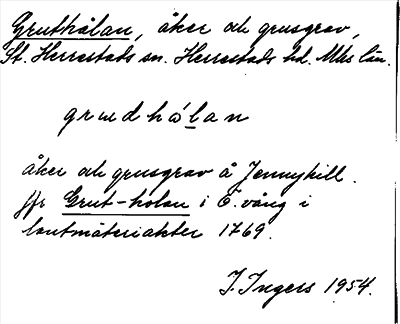 Gruthålan, åker och grusgrav,
St. Herrestads sn. Herrestads hd. Mhs län.
grudhálan
åker och grusgrav å Jennyhill.
jfr Grut-holan i Ö. vång i
lantmäteriakter 1769.
I. Ingers 1954.